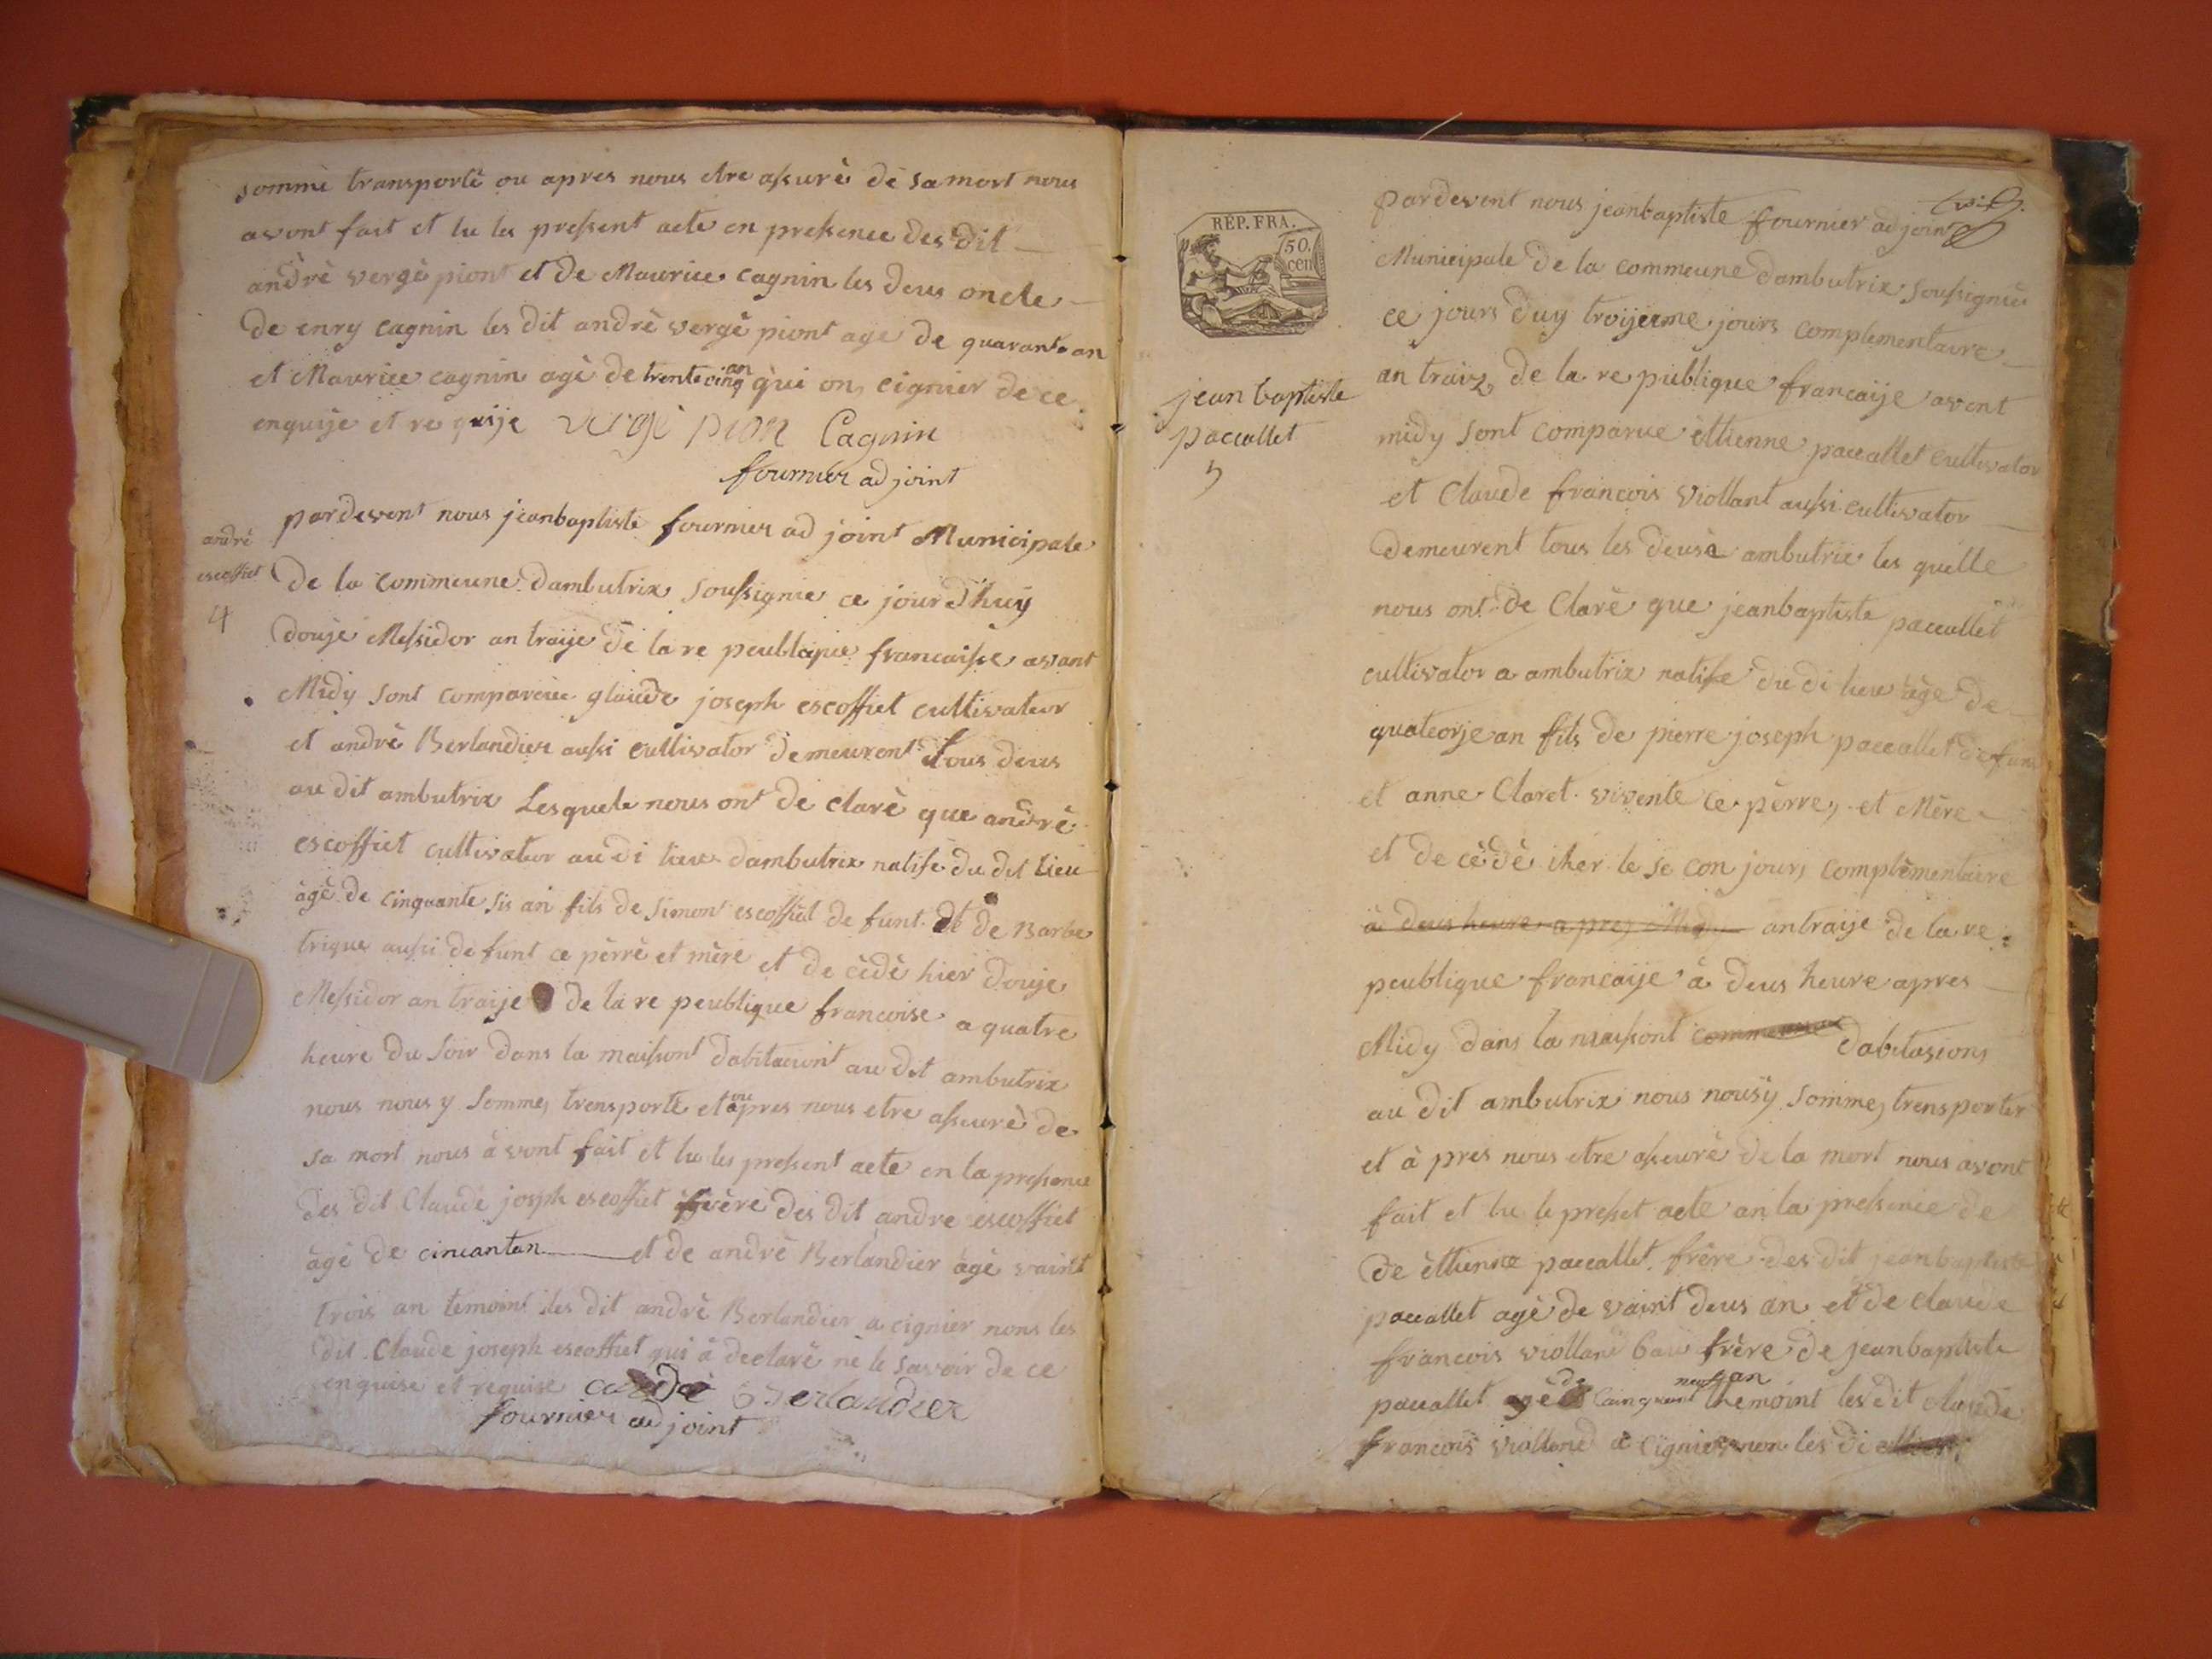 sommè transportè ou apres nous etre assurè de sa mort nous
avont fait et lu les pressent acte en pressence des dit
andrè vergè piont et de Maurice cagnin les deus oncle
de enry cagnin les dit andrè vergè piont age de quarante an
et Maurice cagnin agè de trente cinq an qui on cignier de ce
enquije et re quije vergè pion Cagnin
fournier ad joint
andrè
escoffiet
4
pardevent nous jeanbaptiste fournier ad joint Municipale
de la commeune dambutrix soussignie ce jour d'huy
douje Messidor an traije de la re peublique francaisse avant
Midy sont comparue glaude joseph escoffiet cultivateur
et andrè Berlandier aussi cultivator demeurent tous deus
au dit ambutrix Lesquele nous ont de clarè que andrè
escoffiet cultivateur au di lieu dambutrix natife du dit Lieu
âgè de cinquante sis an fils de Simont escoffiet de funt et de Barbe
trique aussi de funt ce pèrrè et mère et de cèdè hier douje
Messidor an traije de la re peublique francoise a quatre
heure du soir dans la maissont dabitaciont au dit ambutrix
nous nous y somme, trensportè et ou apres nous etre asseurè de
sa mort nous à vont fait et lu les pressent acte en la pressence
des dit Claude josph escoffiet frère des dit andre escoffiet
âgè de cincantan et de andrè Berlandier âgè vaint
trois an temoint les dit andrè Berlandier a cignier nons les
dit Claude joseph escoffiet qui à declarè nè le savoir de ce
enquise et requise andrè Berlandier
fournier ad joint
RÉP. FRA.
50.
cen
jean baptiste
paccallet
5
pardevent nous jeanbaptiste fournier ad joint
Municipale de la commeune dambutrix soussignèe
ce jours duy troijeeme jours complementaire
an traiz, de la re publique francaije avent
midy sont comparue èttienne paccallet cultivator
et Claude francois Viollant aussi cultivator
demeurent tous les deus à ambutrie les quelle
nous ont de Clarè que jeanbaptiste paccallet
cultivator a ambutrix natife du di lieu âge de
quateorje an fils de pierre joseph paccallet defunt
et anne Claret vivente ce pèrre, et Mère
et de cèdè iher le se con jours complèmentaire
à deus heure apres Midy an traije de la re
peublique francaije à deus heure apres
Midy dans la maissont commeune dabitasions
au dit ambutrix nous nousy somme, trensporter
et à pres nous etre asseurè de la mort nous avont
fait et lu le presset acte an la pressence de
de èttienne paccallet frère des dit jeanbaptiste
paccallet agè de vaint deus an et de claude
francois viollant bau frère de jeanbaptiste
paccallet agè de cainquant neuf an themoint les dit claude
francois viollend a cignier non les di